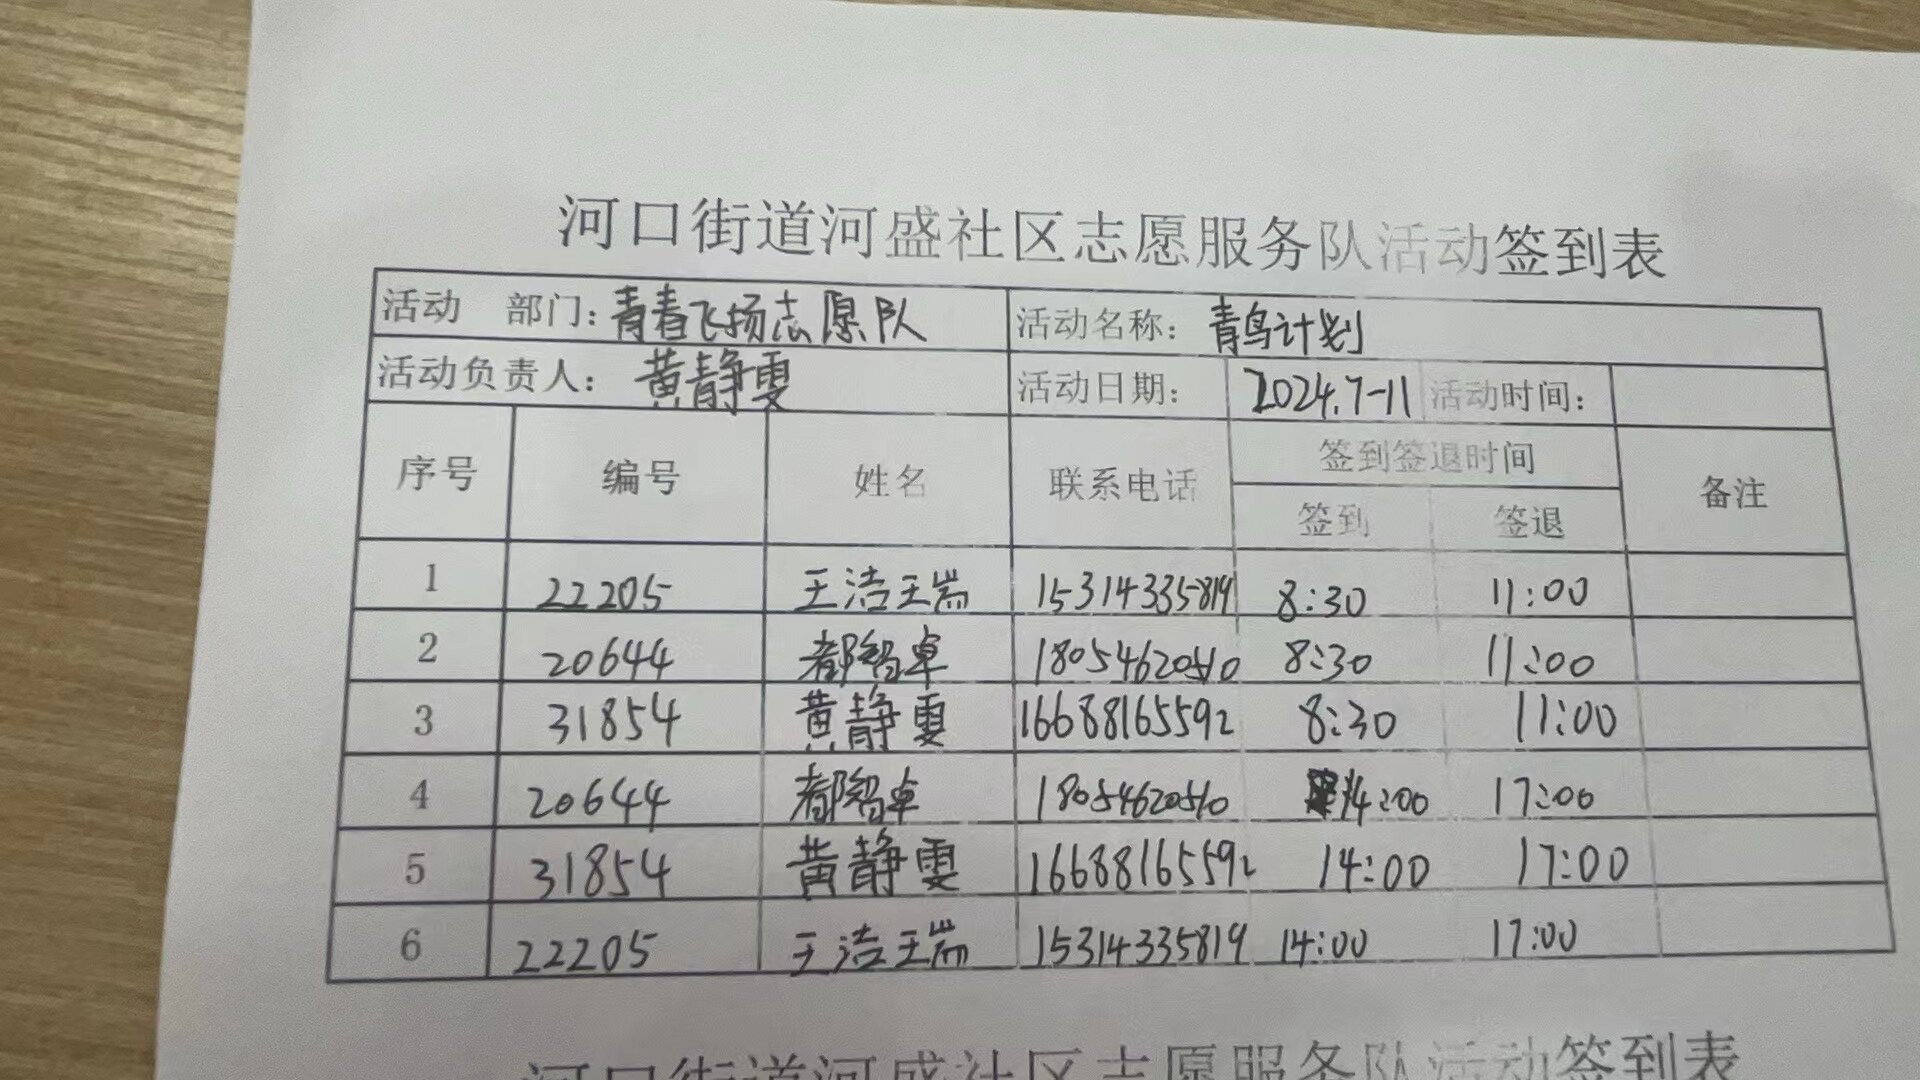 河口街道河盛社区志愿服务队活动签到表
活动 部门：青春飞扬志愿队 活动名称：青鸟计划
活动负责人：黄静雯 活动日期： 2024.7-11 活动时间：
序号 编号 姓名 联系电话 签到签退时间 备注
签到 签退
1 22205 王洁瑞 15314335819 8:30 11:00
2 20644 都智卓 18054620510 8:30 11:00
3 31854 黄静雯 16688165592 8:30 11:00
4 20644 都智卓 18054620510 14:00 17:00
5 31854 黄静雯 16688165592 14:00 17:00
6 22205 王洁瑞 15314335819 14:00 17:00
河口街道河盛社区志愿服务队活动签到表